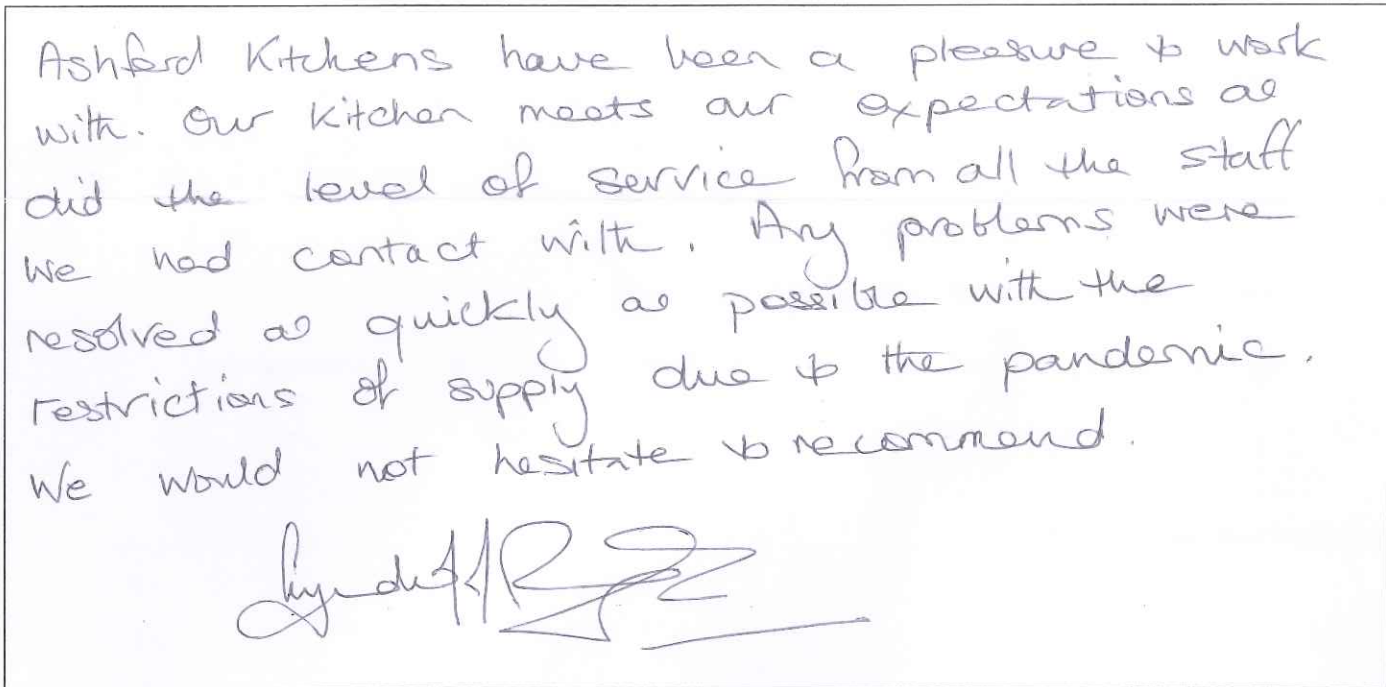 Ashford Kitchens have been a pleasure to work
with. Our Kitchen meets our expectations as
did the level of service from all the staff
we had contact with. Any problems were
resolved as quickly as possible with the
restrictions of supply due to the pandemic.
We would not hesitate to recommend.